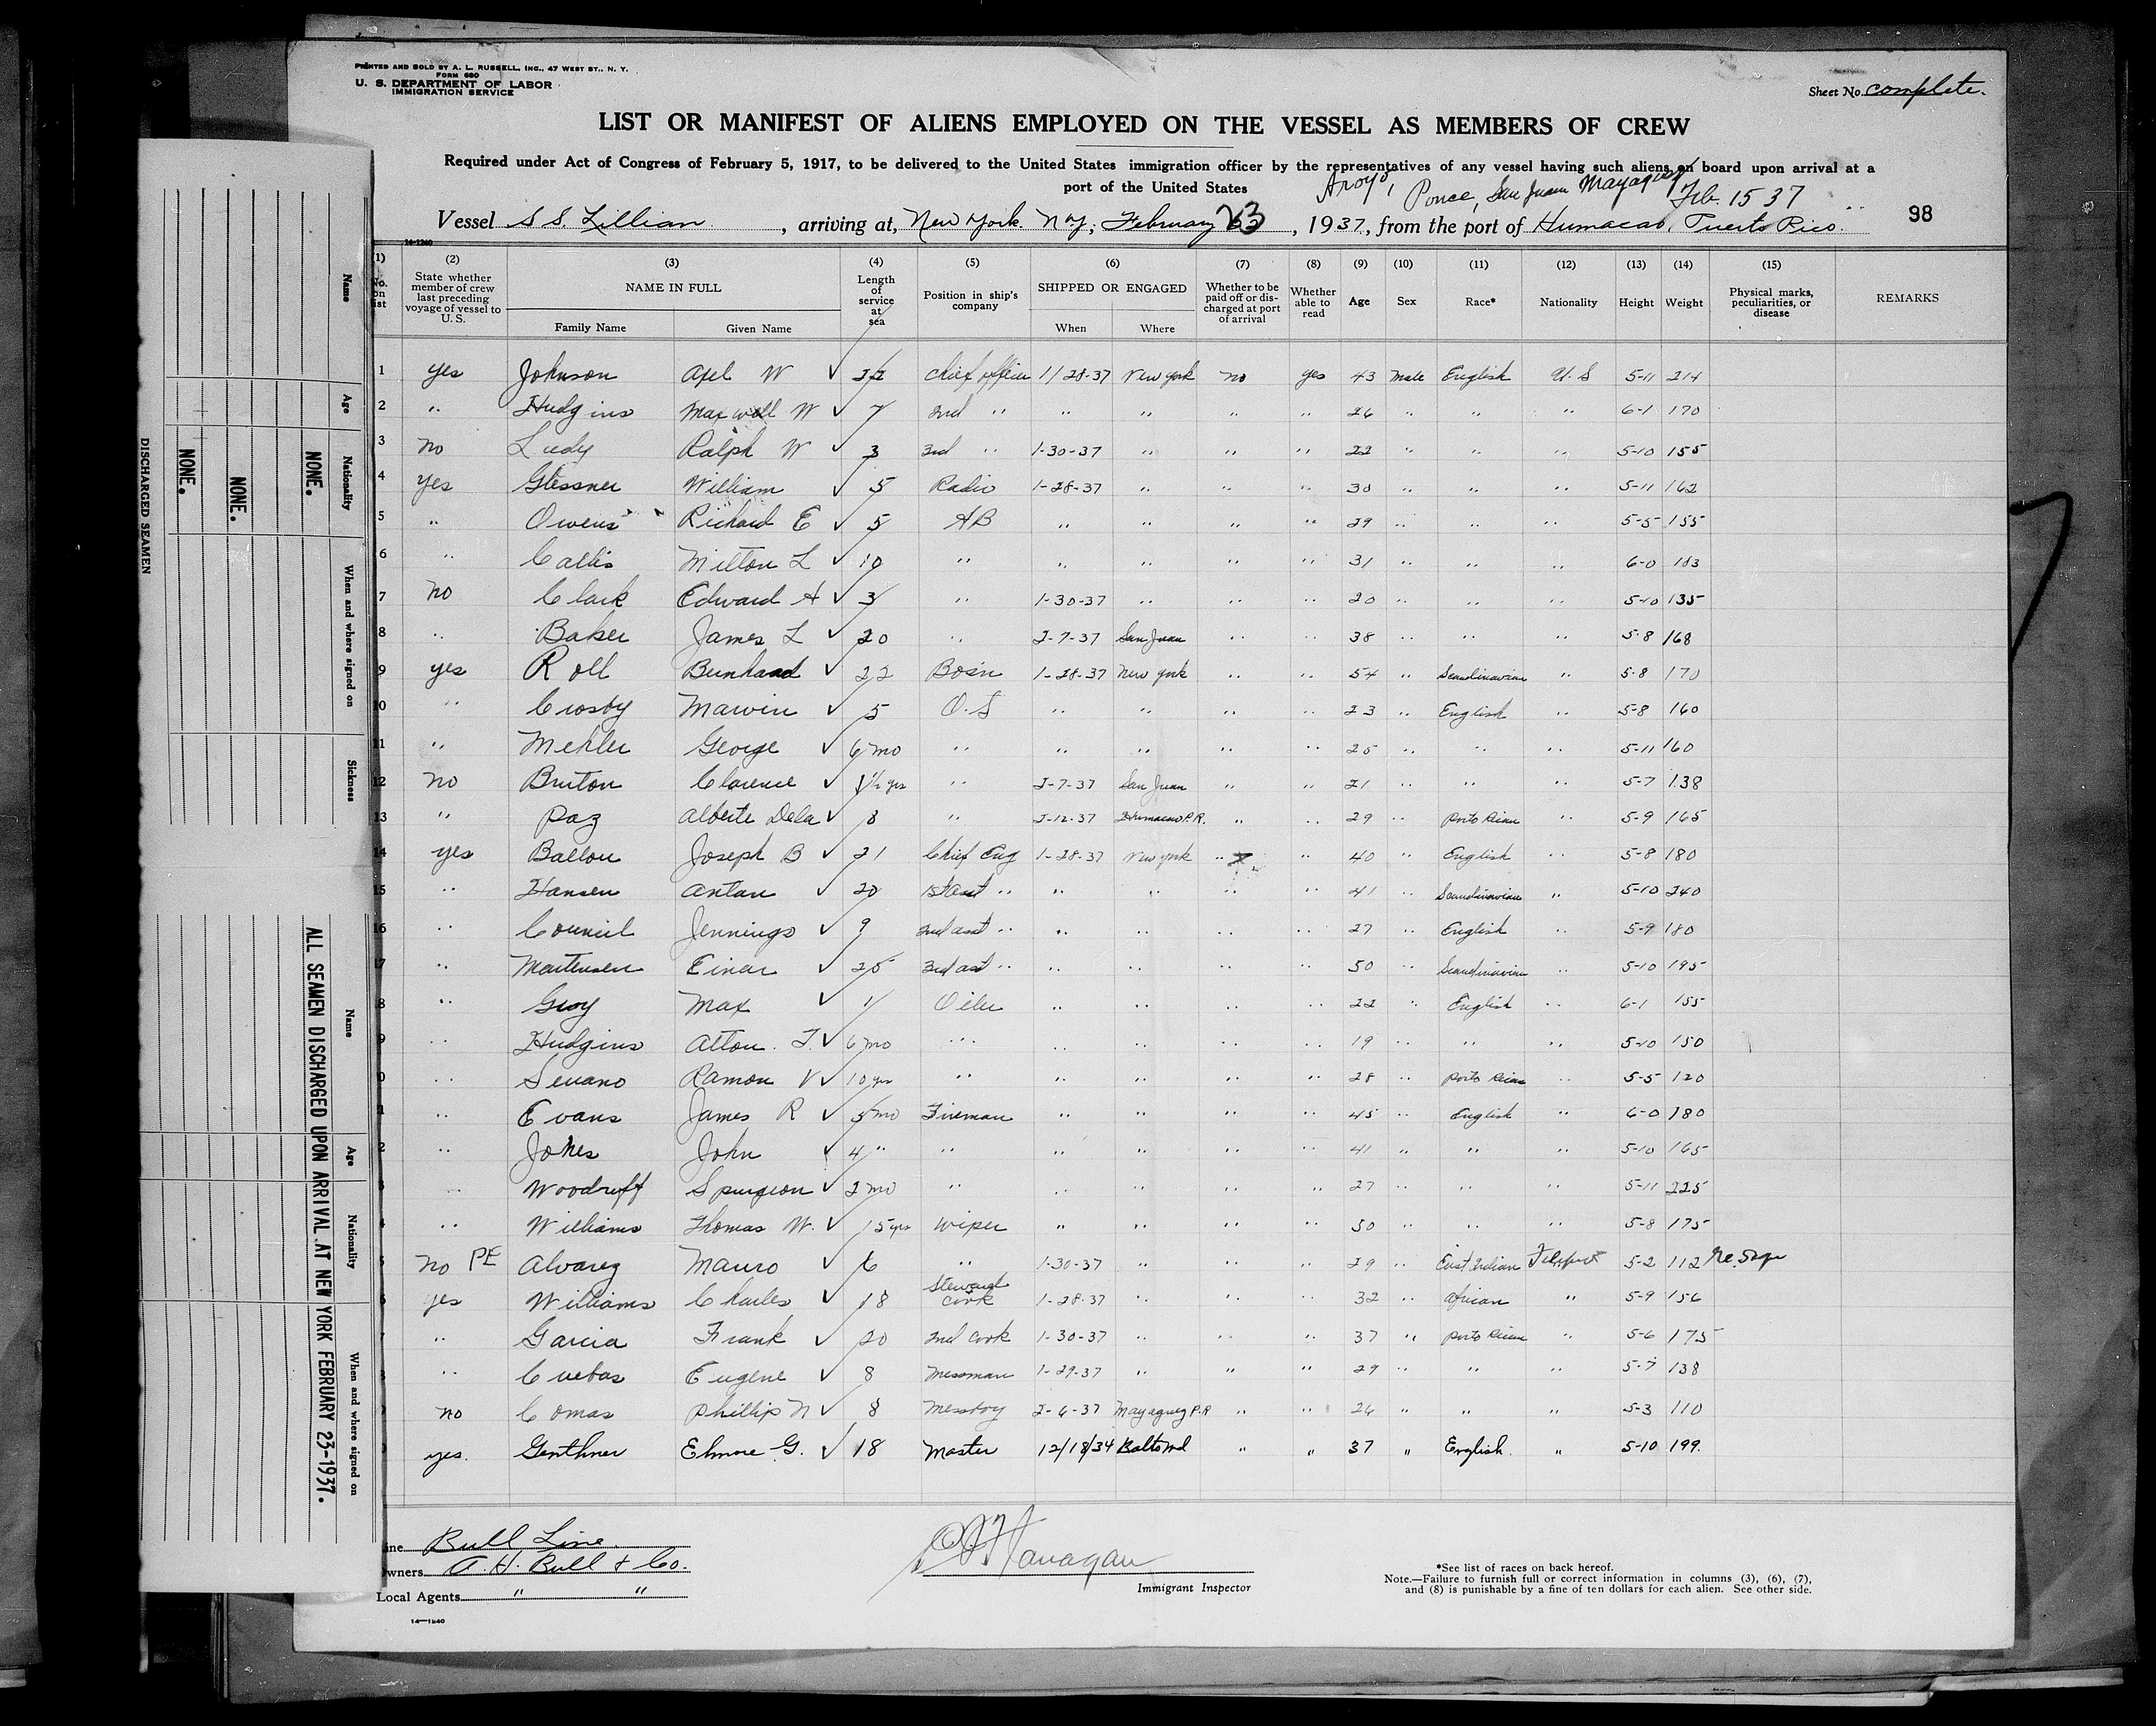 PRINTED AND SOLD BY A. L. RUSSELL, INC., 47 WEST ST., N. Y.
FORM 680
U. S. DEPARTMENT OF LABOR
IMMIGRATION SERVICE
Sheet No. complete.
LIST OR MANIFEST OF ALIENS EMPLOYED ON THE VESSEL AS MEMBERS OF CREW
Required under Act of Congress of February 5, 1917, to be delivered to the United States immigration officer by the representatives of any vessel having such aliens on board upon arrival at a
port of the United States
Aroyo, Ponce, San Juan Mayaguez Feb. 15 37
Vessel S.S. Lillian, arriving at, New York. N.Y; February 23, 1937, from the port of Humacao, Puerto Rico. 98
14-1240
(1) (2) (3) (4) (5) (6) (7) (8) (9) (10) (11) (12) (13) (14) (15)
No. on list State whether member of crew last preceding voyage of vessel to U. S. NAME IN FULL Family Name Given Name Length of service at sea Position in ship's company SHIPPED OR ENGAGED When Where Whether to be paid off or discharged at port of arrival Whether able to read Age Sex Race* Nationality Height Weight Physical marks, peculiarities, or disease REMARKS
1 yes Johnson Axel W ✓ 22 Chief officer 1/28-37 New York no yes 43 Male English U.S 5-11 214
2 " Hudgins Maxwell W ✓ 7 2nd " " " " " 26 " " " 6-1 170
3 no Ludy Ralph W ✓ 3 3rd " 1-30-37 " " " 22 " " " 5-10 155
4 yes Glessner William ✓ 5 Radio 1-28-37 " " " 30 " " " 5-11 162
5 " Owens Richard E ✓ 5 AB " " " " 29 " " " 5-5 155
6 " Callis Milton L ✓ 10 " " " " " 31 " " " 6-0 183
7 no Clark Edward H ✓ 3 " 1-30-37 " " " 20 " " " 5-10 135
8 " Baker James L ✓ 20 " 2-7-37 San Juan " " 38 " " " 5-8 168
9 yes Roll Bernhard ✓ 22 Bos'n 1-28-37 New York " " 54 " Scandinavian " 5-8 170
10 " Crosby Marvin ✓ 5 O.S " " " " 23 " English " 5-8 160
11 " Mehler George ✓ 6 mo " " " " " 25 " " " 5-11 160
12 no Bruton Clarence ✓ 1½ yrs " 2-7-37 San Juan " " 21 " " " 5-7 138
13 " Paz Alberte Dela ✓ 8 " 2-12-37 Humacao P.R. " " 29 " Porto Rican " 5-9 165
14 yes Ballou Joseph B ✓ 21 Chief Eng 1-28-37 New York " " 40 " English " 5-8 180
15 " Hansen Antan ✓ 20 1st asst " " " " " 41 " Scandinavian " 5-10 240
16 " Council Jennings ✓ 9 2nd asst " " " " " 27 " English " 5-9 180
17 " Martensen Einar ✓ 25 3rd ast " " " " " 50 " Scandinavian " 5-10 195
8 " Guy Max ✓ 1 Oiler " " " " 22 " English " 6-1 155
9 " Hudgins Alton. T. ✓ 6 mo " " " " " 19 " " " 5-10 150
0 " Serrano Ramon V ✓ 10 yrs " " " " " 28 " Porto Rican " 5-5 120
1 " Evans James R ✓ 5 mo Fireman " " " " 45 " English " 6-0 180
2 " Jones John ✓ 4 " " " " " " 41 " " " 5-10 165
3 " Woodruff Spurgeon ✓ 2 mo " " " " " 27 " " " 5-11 225
4 " Williams Thomas W. ✓ 15 yrs Wiper " " " " 50 " " " 5-8 175
5 no PE Alvarez Mauro ✓ 6 " 1-30-37 " " " 29 " East Indian 5-2 112
6 yes Williams Charles ✓ 18 Steward Cook 1-28-37 " " " 32 " African " 5-9 156
7 " Garcia Frank ✓ 20 2nd cook 1-30-37 " " " 37 " Porto Rican " 5-6 175
8 " Cuebas Eugene ✓ 8 Messman 1-29-37 " " " 29 " " " 5-7 138
9 no Comas Phillip N ✓ 8 Messboy 2-6-37 Mayaguez P.R " " 26 " " " 5-3 110
0 yes. Genthner Elmore G. ✓ 18 Master 12/18/34 Balto Md " " 37 " English. " 5-10 199.
Line Bull Line.
Owners A. H. Bull & Co.
Local Agents " "
14—1240
Immigrant Inspector
*See list of races on back hereof.
Note.—Failure to furnish full or correct information in columns (3), (6), (7),
and (8) is punishable by a fine of ten dollars for each alien. See other side.
DISCHARGED SEAMEN
Name Age Nationality When and where signed on Sickness
NONE.
NONE.
NONE.
Name Age Nationality When and where signed on
ALL SEAMEN DISCHARGED UPON ARRIVAL AT NEW YORK FEBRUARY 23-1937.